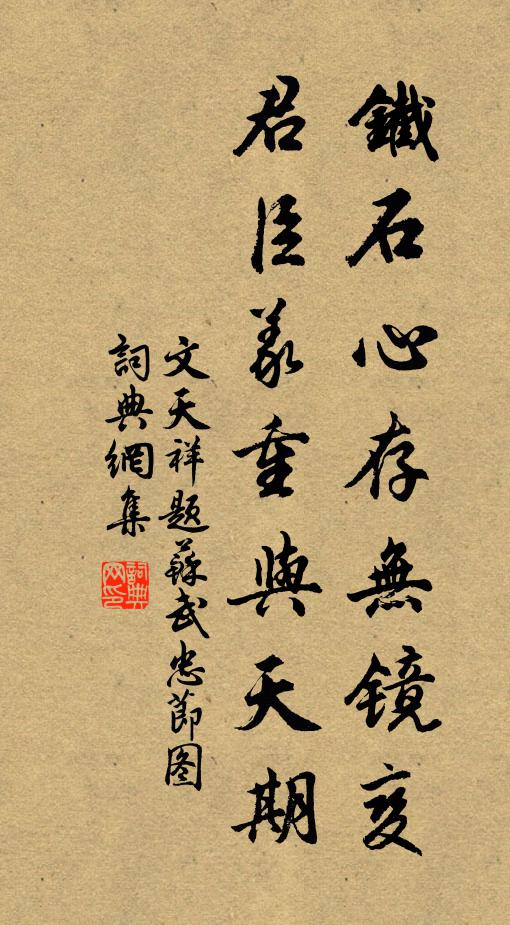 鐵石心存無镜變
君臣義重與天期
文天祥題蘇武忠節图
詞典網集
詞典
网印